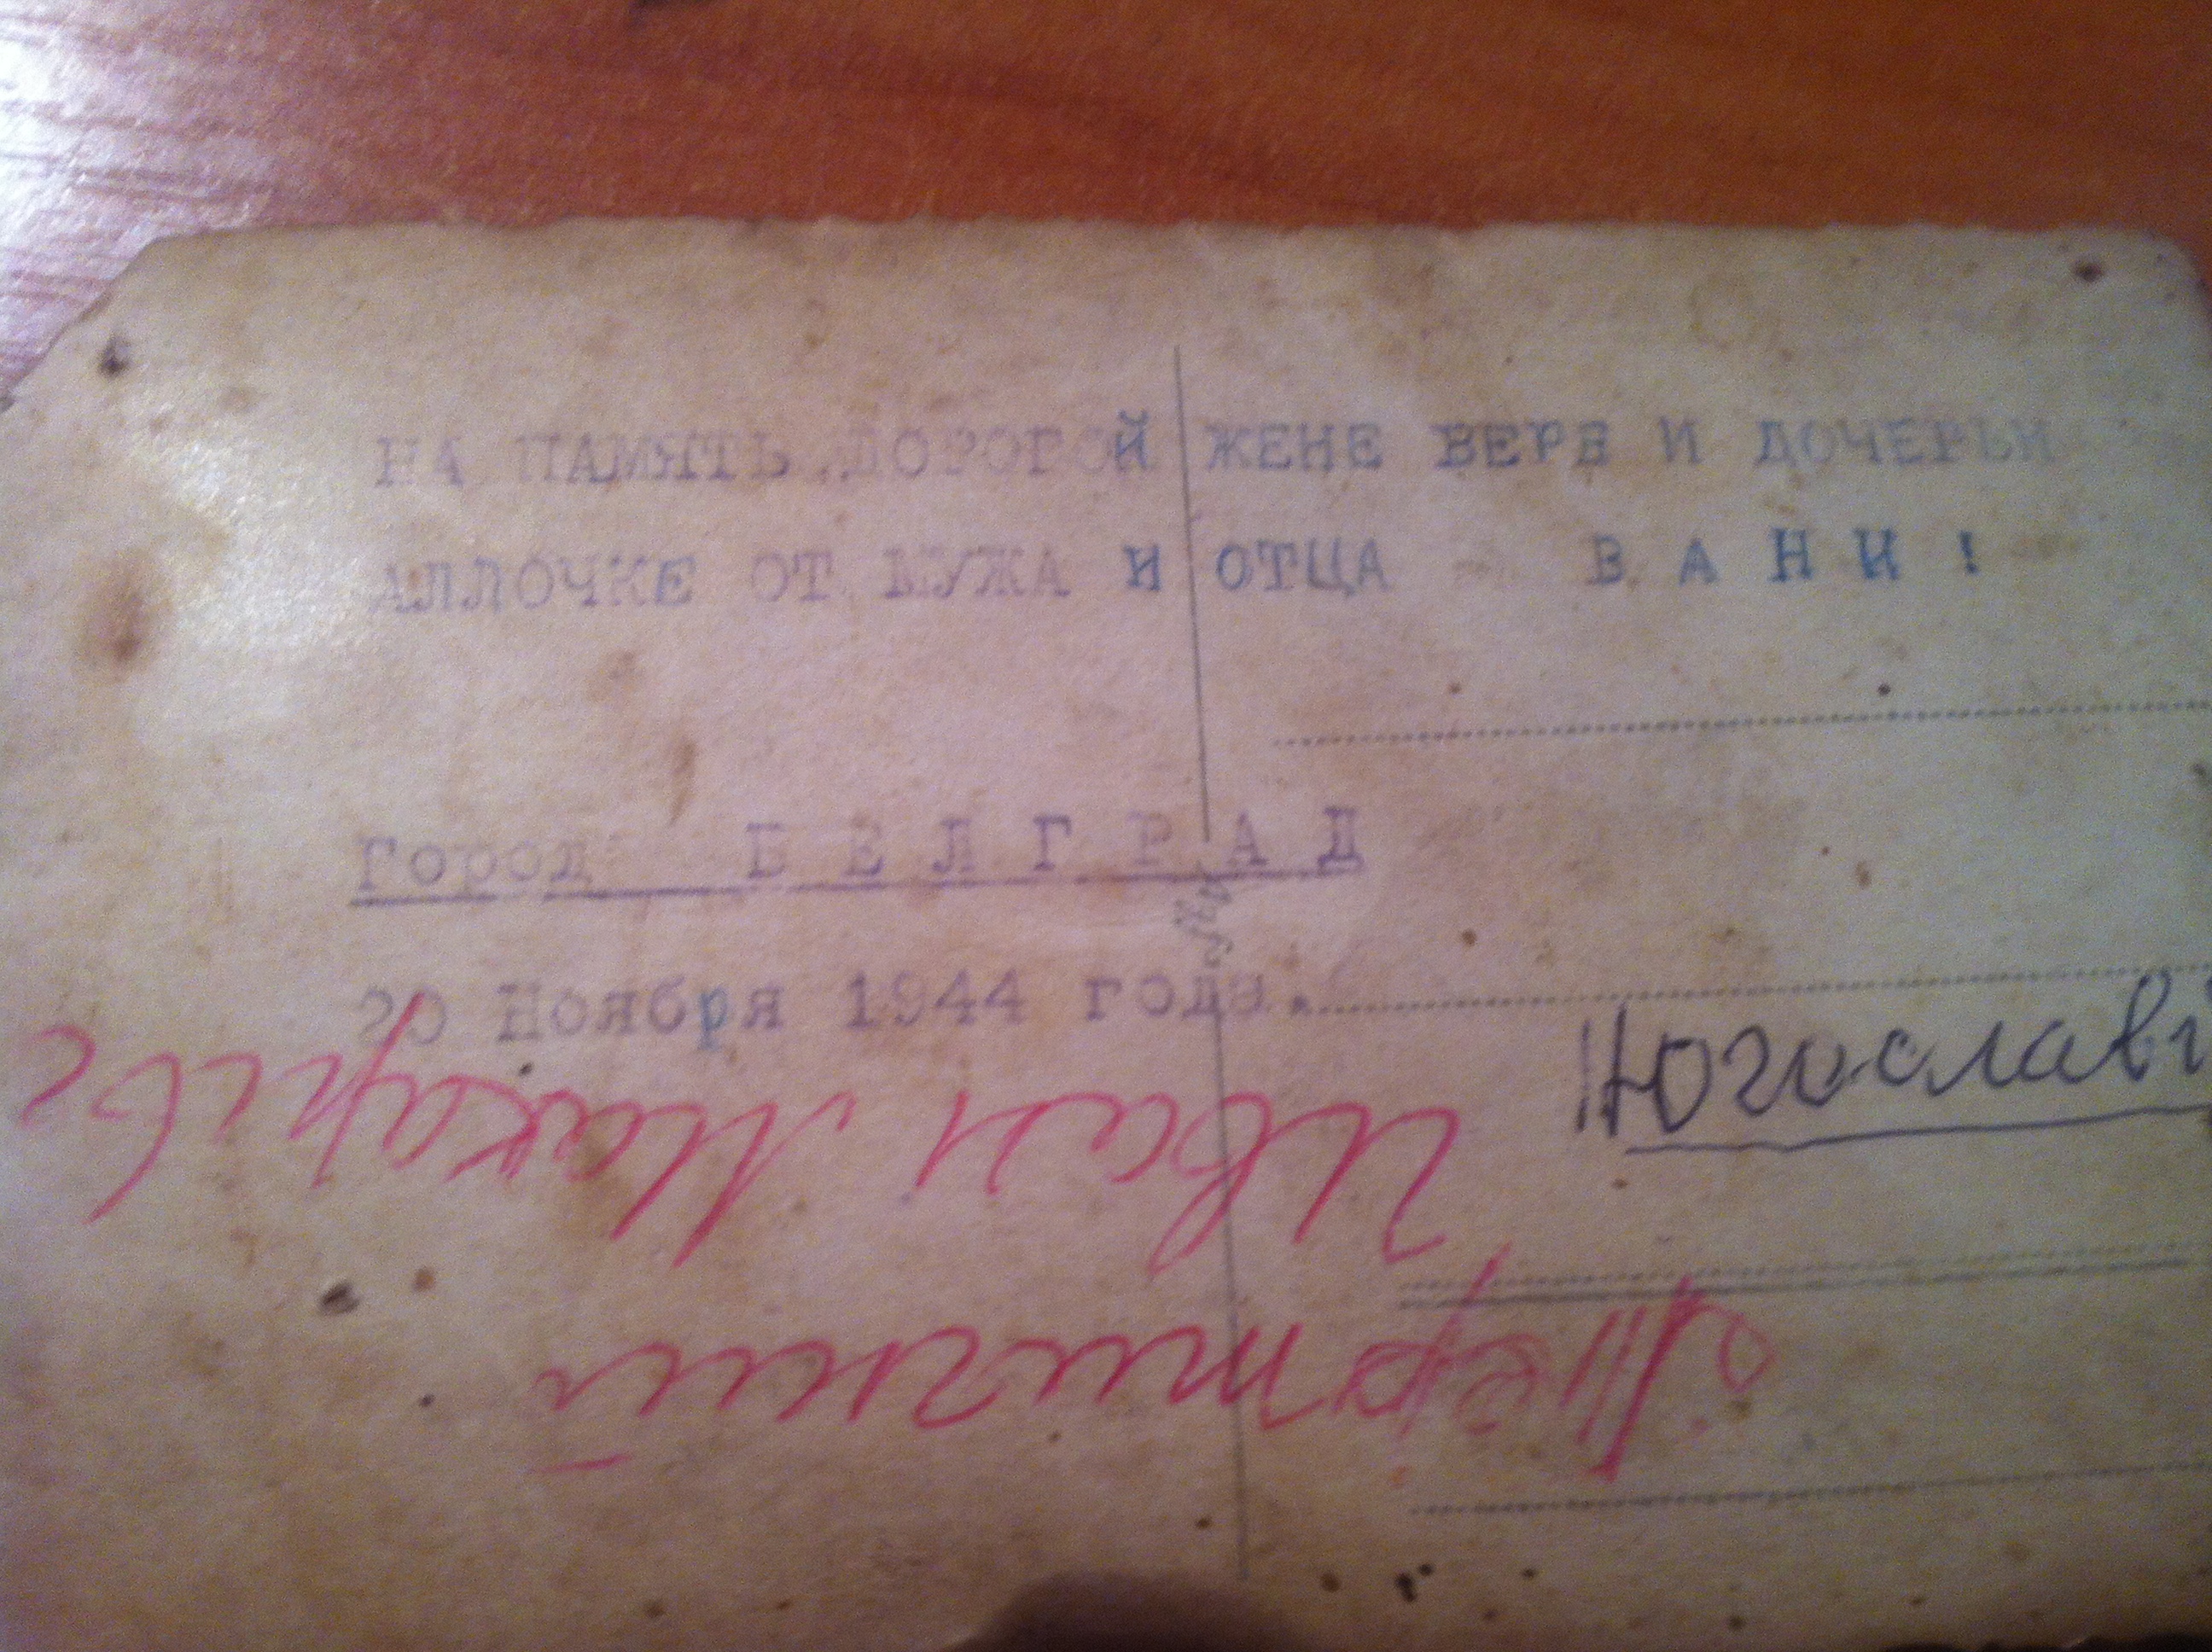 НА ПАМЯТЬ ДОРОГОЙ ЖЕНЕ ВЕРЕ И ДОЧЕРЬИ
АЛЛОЧКЕ ОТ МУЖА И ОТЦА В А Н И !
Город Б Е Л Г Р А Д
20 Ноября 1944 года.
Югослави
Иван Макарыв